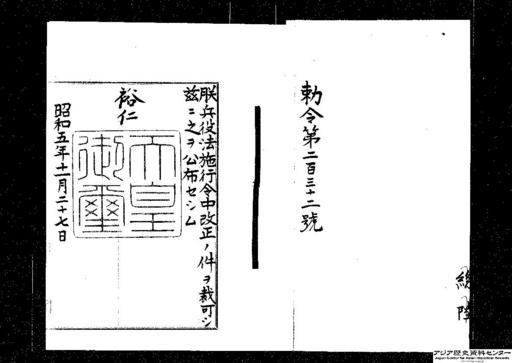 勅令第二百三十二號
總
陸
朕兵役法施行令中改正ノ件ヲ裁可シ
茲ニ之ヲ公布セシム
裕仁
天皇
御璽
昭和五年十一月二十七日
アジア歴史資料センター
Japan Center for Asian Historical Records